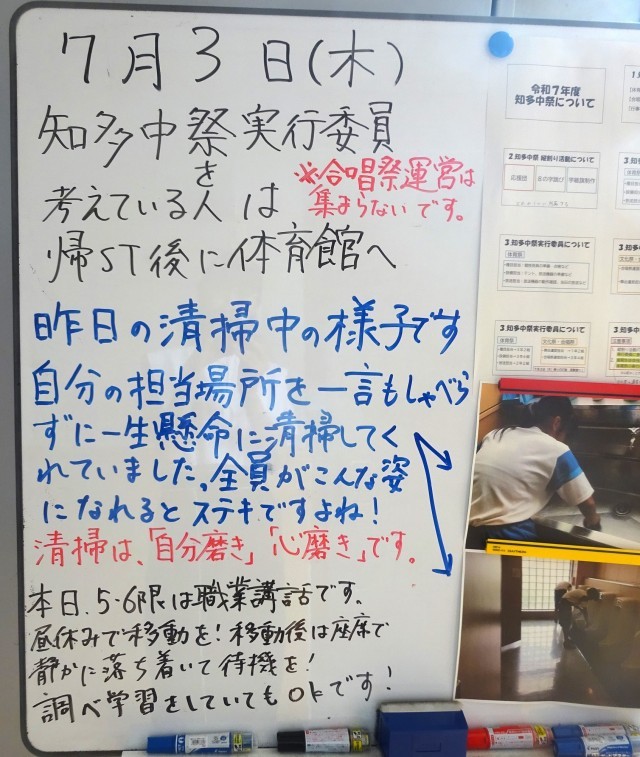 7月3日(木)
知多中祭実行委員
を
考えている人は
※合唱祭運営は
集まらないです。
帰ST後に体育館へ
昨日の清掃中の様子です
自分の担当場所を一言もしゃべら
ずに一生懸命に清掃してく
れていました。全員がこんな姿
になれるとステキですよね!
清掃は、「自分磨き」「心磨き」です。
本日、5・6限は職業講話です。
昼休みで移動を!移動後は座席で
静かに落ち着いて待機を!
調べ学習をしていてもOKです!
令和7年度
知多中祭について
2.知多中祭 縦割り活動について
応援団
3.知多中祭実行委員について
体育祭
3.知多中祭実行委員について
体育祭